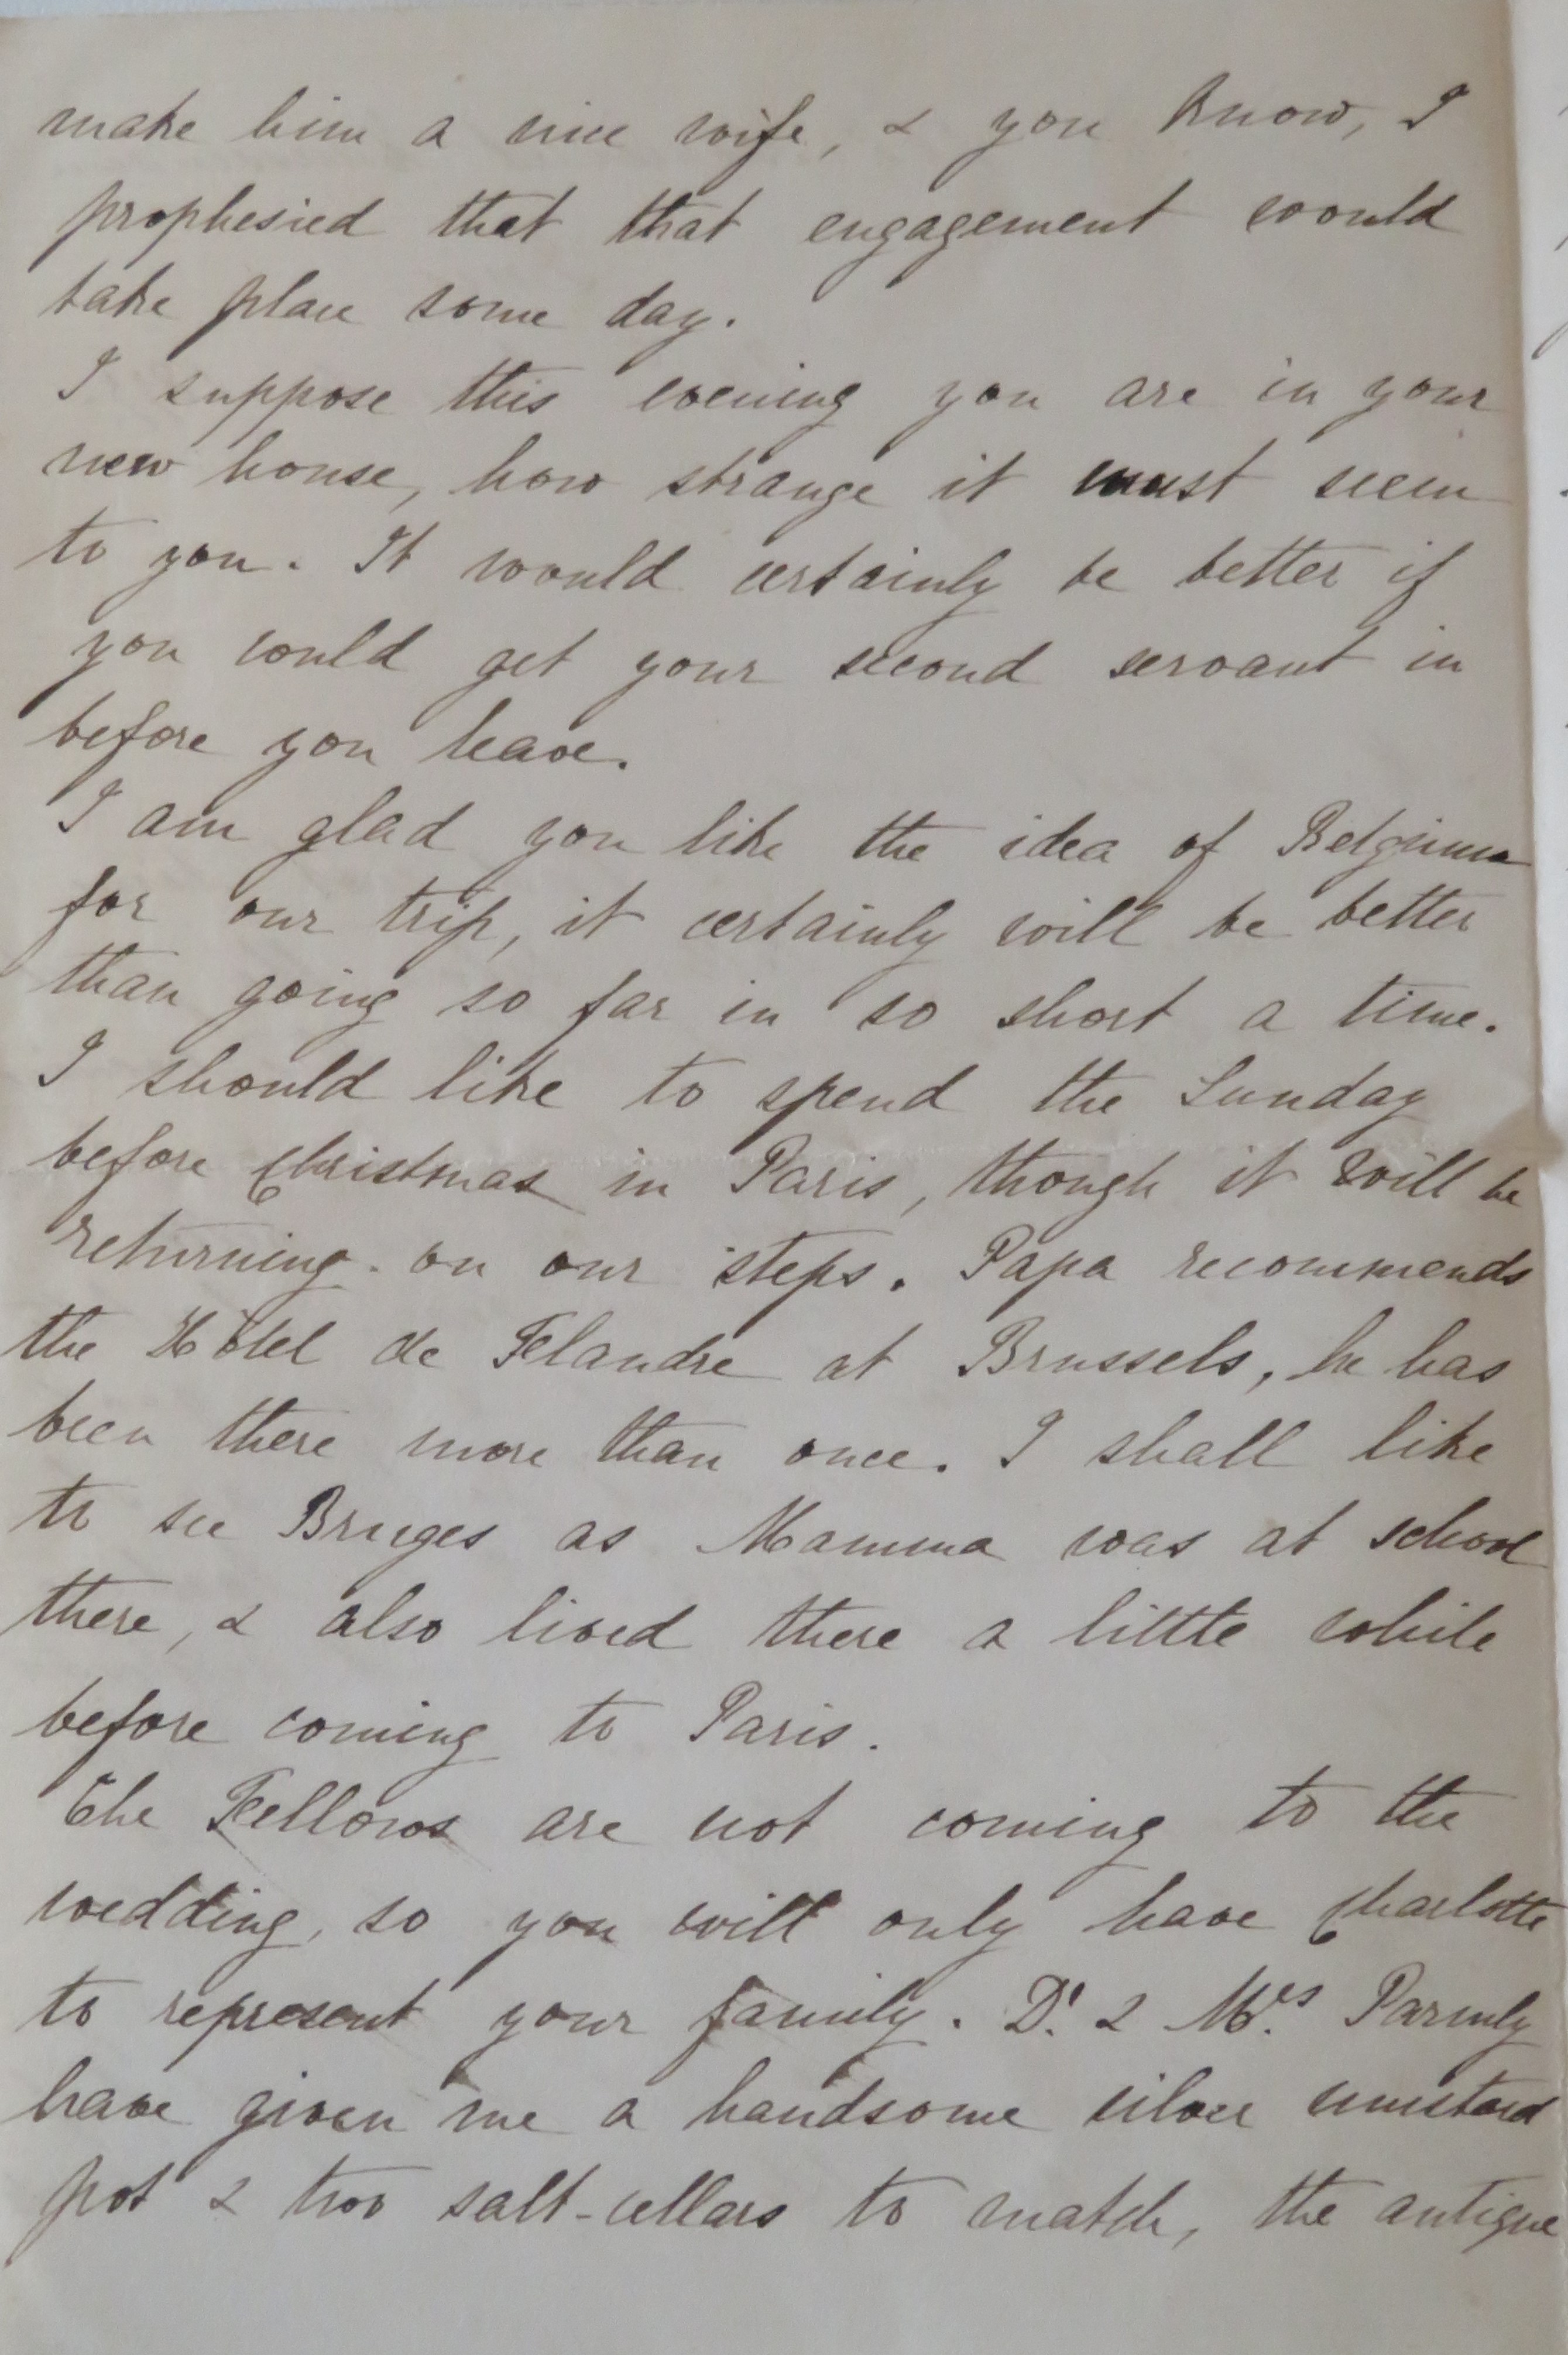 make him a nice wife, & you know, I
prophesied that that engagement would
take place some day.
I suppose this evening you are in your
new house, how strange it must seem
to you. It would certainly be better if
you could get your second servant in
before you leave.
I am glad you like the idea of Belgium
for our trip, it certainly will be better
than going so far in so short a time.
I should like to spend the Sunday
before Christmas in Paris, though it will be
returning on our steps. Papa recommends
the Hôtel de Flandre at Brussels, he has
been there more than once. I shall like
to see Bruges as Mamma was at school
there, & also lived there a little while
before coming to Paris.
The Fellows are not coming to the
wedding, so you will only have Charlotte
to represent your family. Dr. & Mrs. Parmly
have given me a handsome silver mustard
pot & two salt-cellars to match, the antique